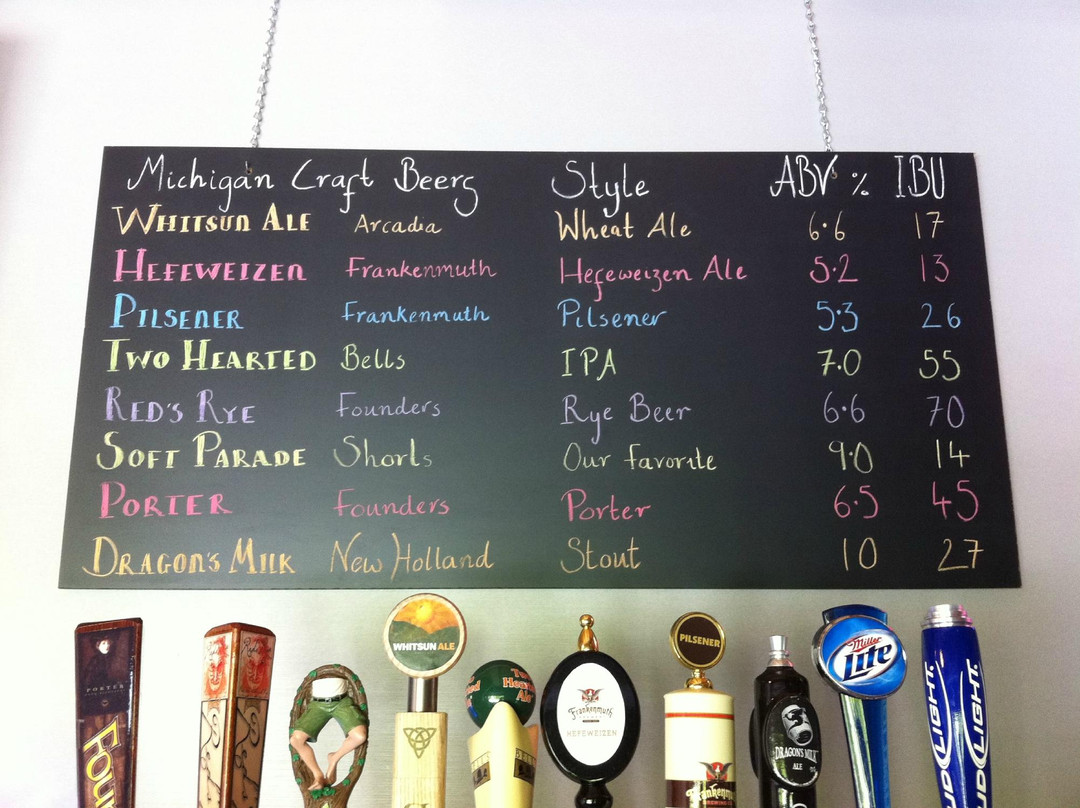 Michigan Craft Beers Style ABV % IBU
WHITSUN ALE Arcadia Wheat Ale 6.6 17
HEFEWEIZEN Frankenmuth Hefeweizen Ale 5.2 13
PILSENER Frankenmuth Pilsener 5.3 26
TWO HEARTED Bells IPA 7.0 55
RED'S RYE Founders Rye Beer 6.6 70
SOFT PARADE Shorts Our favorite 9.0 14
PORTER Founders Porter 6.5 45
DRAGON'S MILK New Holland Stout 10 27
PORTER
FOUN
WHITSUN ALE
Two
Hearted
Ale
Frankenmuth
HEFEWEIZEN
PILSENER
Frankenmuth
DRAGON'S MILK
ALE
Miller
Lite
BUD LIGHT.